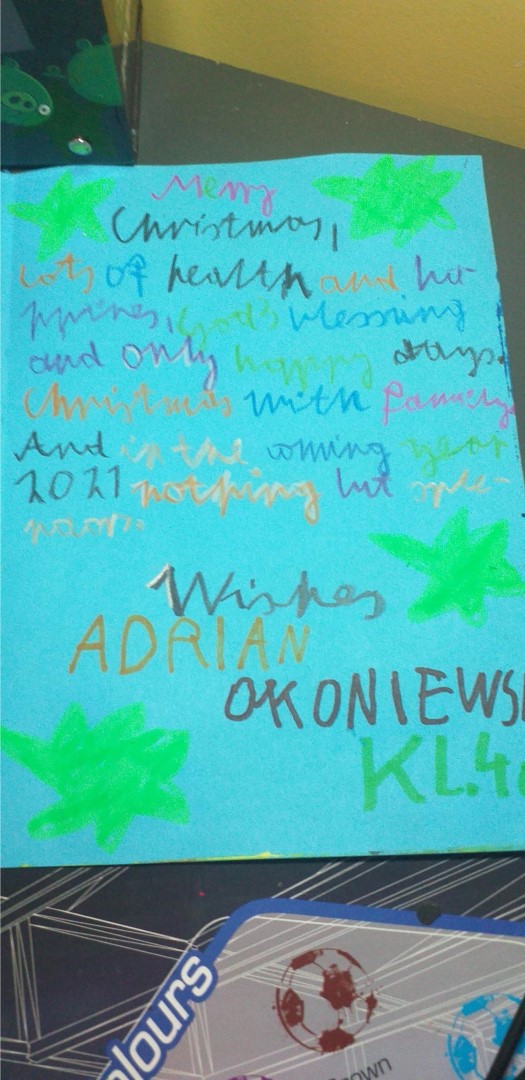 Merry
Christmas,
Lots of health and ha-
ppines, God's blessing
and only happy days.
Christmas with family
And in the coming year
2021 nothing but sple-
Wishes
ADRIAN
OKONIEWS
KL.4
olours
own